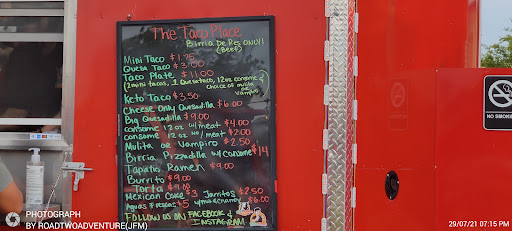 The Taco Place
Birria De Res ONLY!
(Beef)
Mini Taco $1.75
Quesa Taco $3.00
Taco Plate $11.00
(2 mini tacos, 1 Quesataco, 12oz consome &
choice of mulita
or
vampiro
Keto Taco $3.50
Cheese Only Quesadilla $6.00
Big Quesadilla $9.00
consome 12oz w/meat $4.00
consome 12oz no/meat $2.00
Mulita or Vampiro $2.50
Birria Pizzadilla w/consome $14
Tapatio Ramen $9.00
Burrito $9.00
Torta $9.00
Mexican Coke $3 Jarritos $2.50
Aguas Frescas $5
$6.00
Follow us on Facebook &
Instagram
NO SMOKING
PHOTOGRAPH
BY ROADTWOADVENTURE(JFM)
29/07/21 07:15 PM